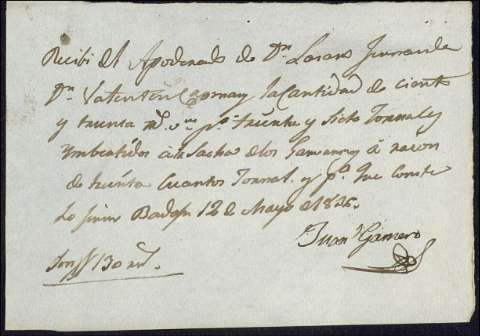 Recibi del Apoderado de Dn. Lazaro
Dn. Valentin la Cantidad de ciento
y treinta rs. vn. pr. treinta y siete Jornales
Imbertidos á la Sacha de los á razon
de treinta Cuartos Jornal. y pa. que Conste
Lo firmo Badaj. 12 de Mayo de 1826.
Juan Gamero
Son 130 rs.